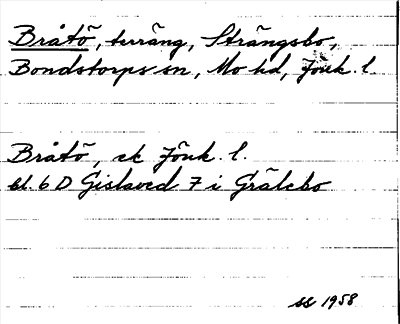 Bråtö, terräng, Strängsbo,
Bondstorps sn, Mo hd, Jönk. l.
Bråtö, ek Jönk. l.
bl. 6 D Gislaved 7 i Grälebo
ss 1958